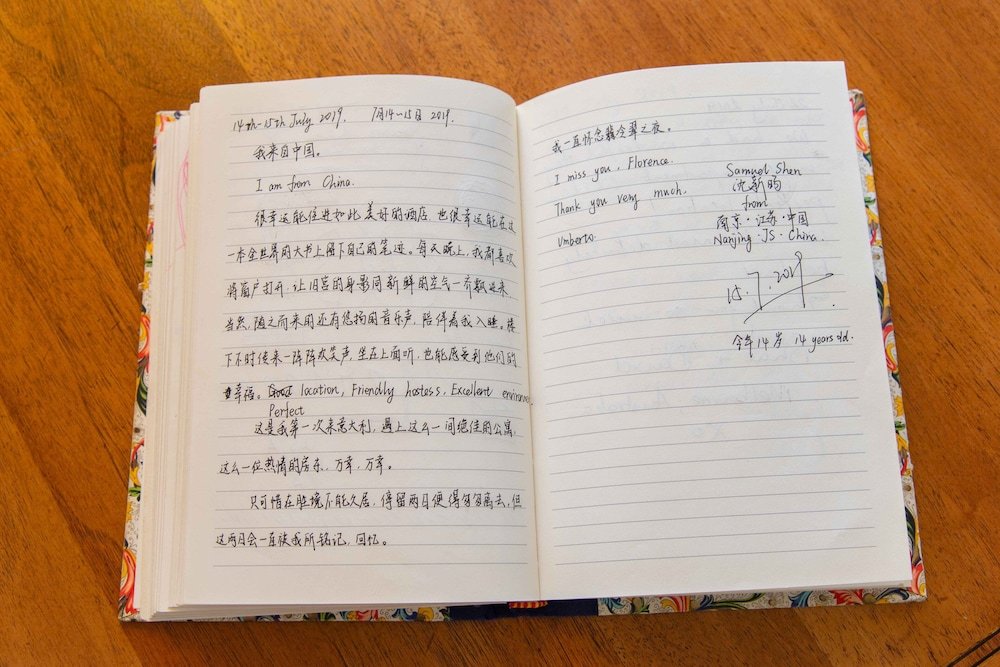 14th-15th July 2019. 7月14~15日 2019.
我来自中国。
I am from China.
很幸运能住进如此美好的酒店,也很幸运能在这
一本全世界的大书上留下自己的笔迹。每天晚上,我都喜欢
将窗户打开,让旧宫的身影同新鲜的空气一齐飘进来,
当然,随之而来的还有悠扬的音乐声,陪伴着我入睡。楼
下不时传来一阵阵欢笑声,坐在上面听,也能感受到他们的
幸福。Good location, Friendly hostess, Excellent environment.
Perfect
这是我第一次来意大利,遇上这么一间绝佳的公寓,
这么一位热情的房东,万幸,万幸。
只可惜在胜境不能久居,停留两日便得匆匆离去,但
这两日会一直被我所铭记,回忆。
我一直怀念翡冷翠之夜。
I miss you, Florence.
Thank you very much,
Umberto.
Samuel Shen
沈新旸
from
南京·江苏·中国
Nanjing·JS·China.
15.7.2019
今年14岁 14 years old.